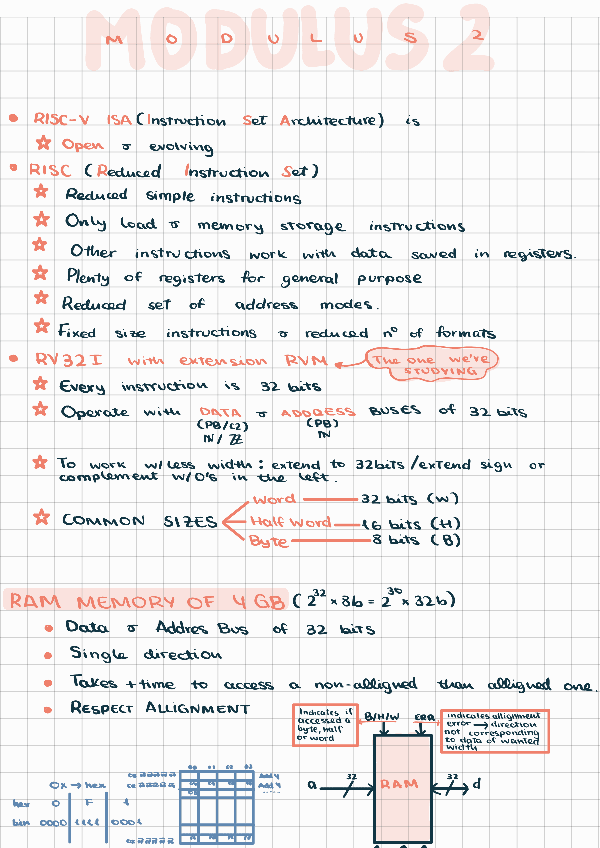 MODULUS 2
MODULUS 2
RISC-V ISA (Instruction Set Architecture) is
Open & evolving
RISC (Reduced Instruction Set)
Reduced simple instructions
Only load & memory storage instructions
Other instructions work with data saved in registers.
Plenty of registers for general purpose
Reduced set of address modes.
Fixed size instructions & reduced nº of formats
RV32I with extension RVM
The one we've
STUDYING
Every instruction is 32 bits
Operate with DATA & ADDRESS BUSES of 32 bits
(PB/C2) (PB)
ℕ/ℤ ℕ
To work w/less width: extend to 32bits/extend sign or
complement w/0's in the left.
COMMON SIZES
Word 32 bits (W)
Half Word 16 bits (H)
Byte 8 bits (B)
RAM MEMORY OF 4 GB (2³² × 8b = 2³⁰ × 32b)
Data & Addres Bus of 32 bits
Single direction
Takes + time to access a non-alligned than alligned one.
RESPECT ALLIGNMENT
Indicates if
accessed a
byte, half
or word
B/H/W ERR
indicates allignment
error → direction
not corresponding
to data of wanted
width
a 32 RAM 32 d
0x → hex
hex 0 F 1
bin 0000 1111 0001
Add 4
Add 4